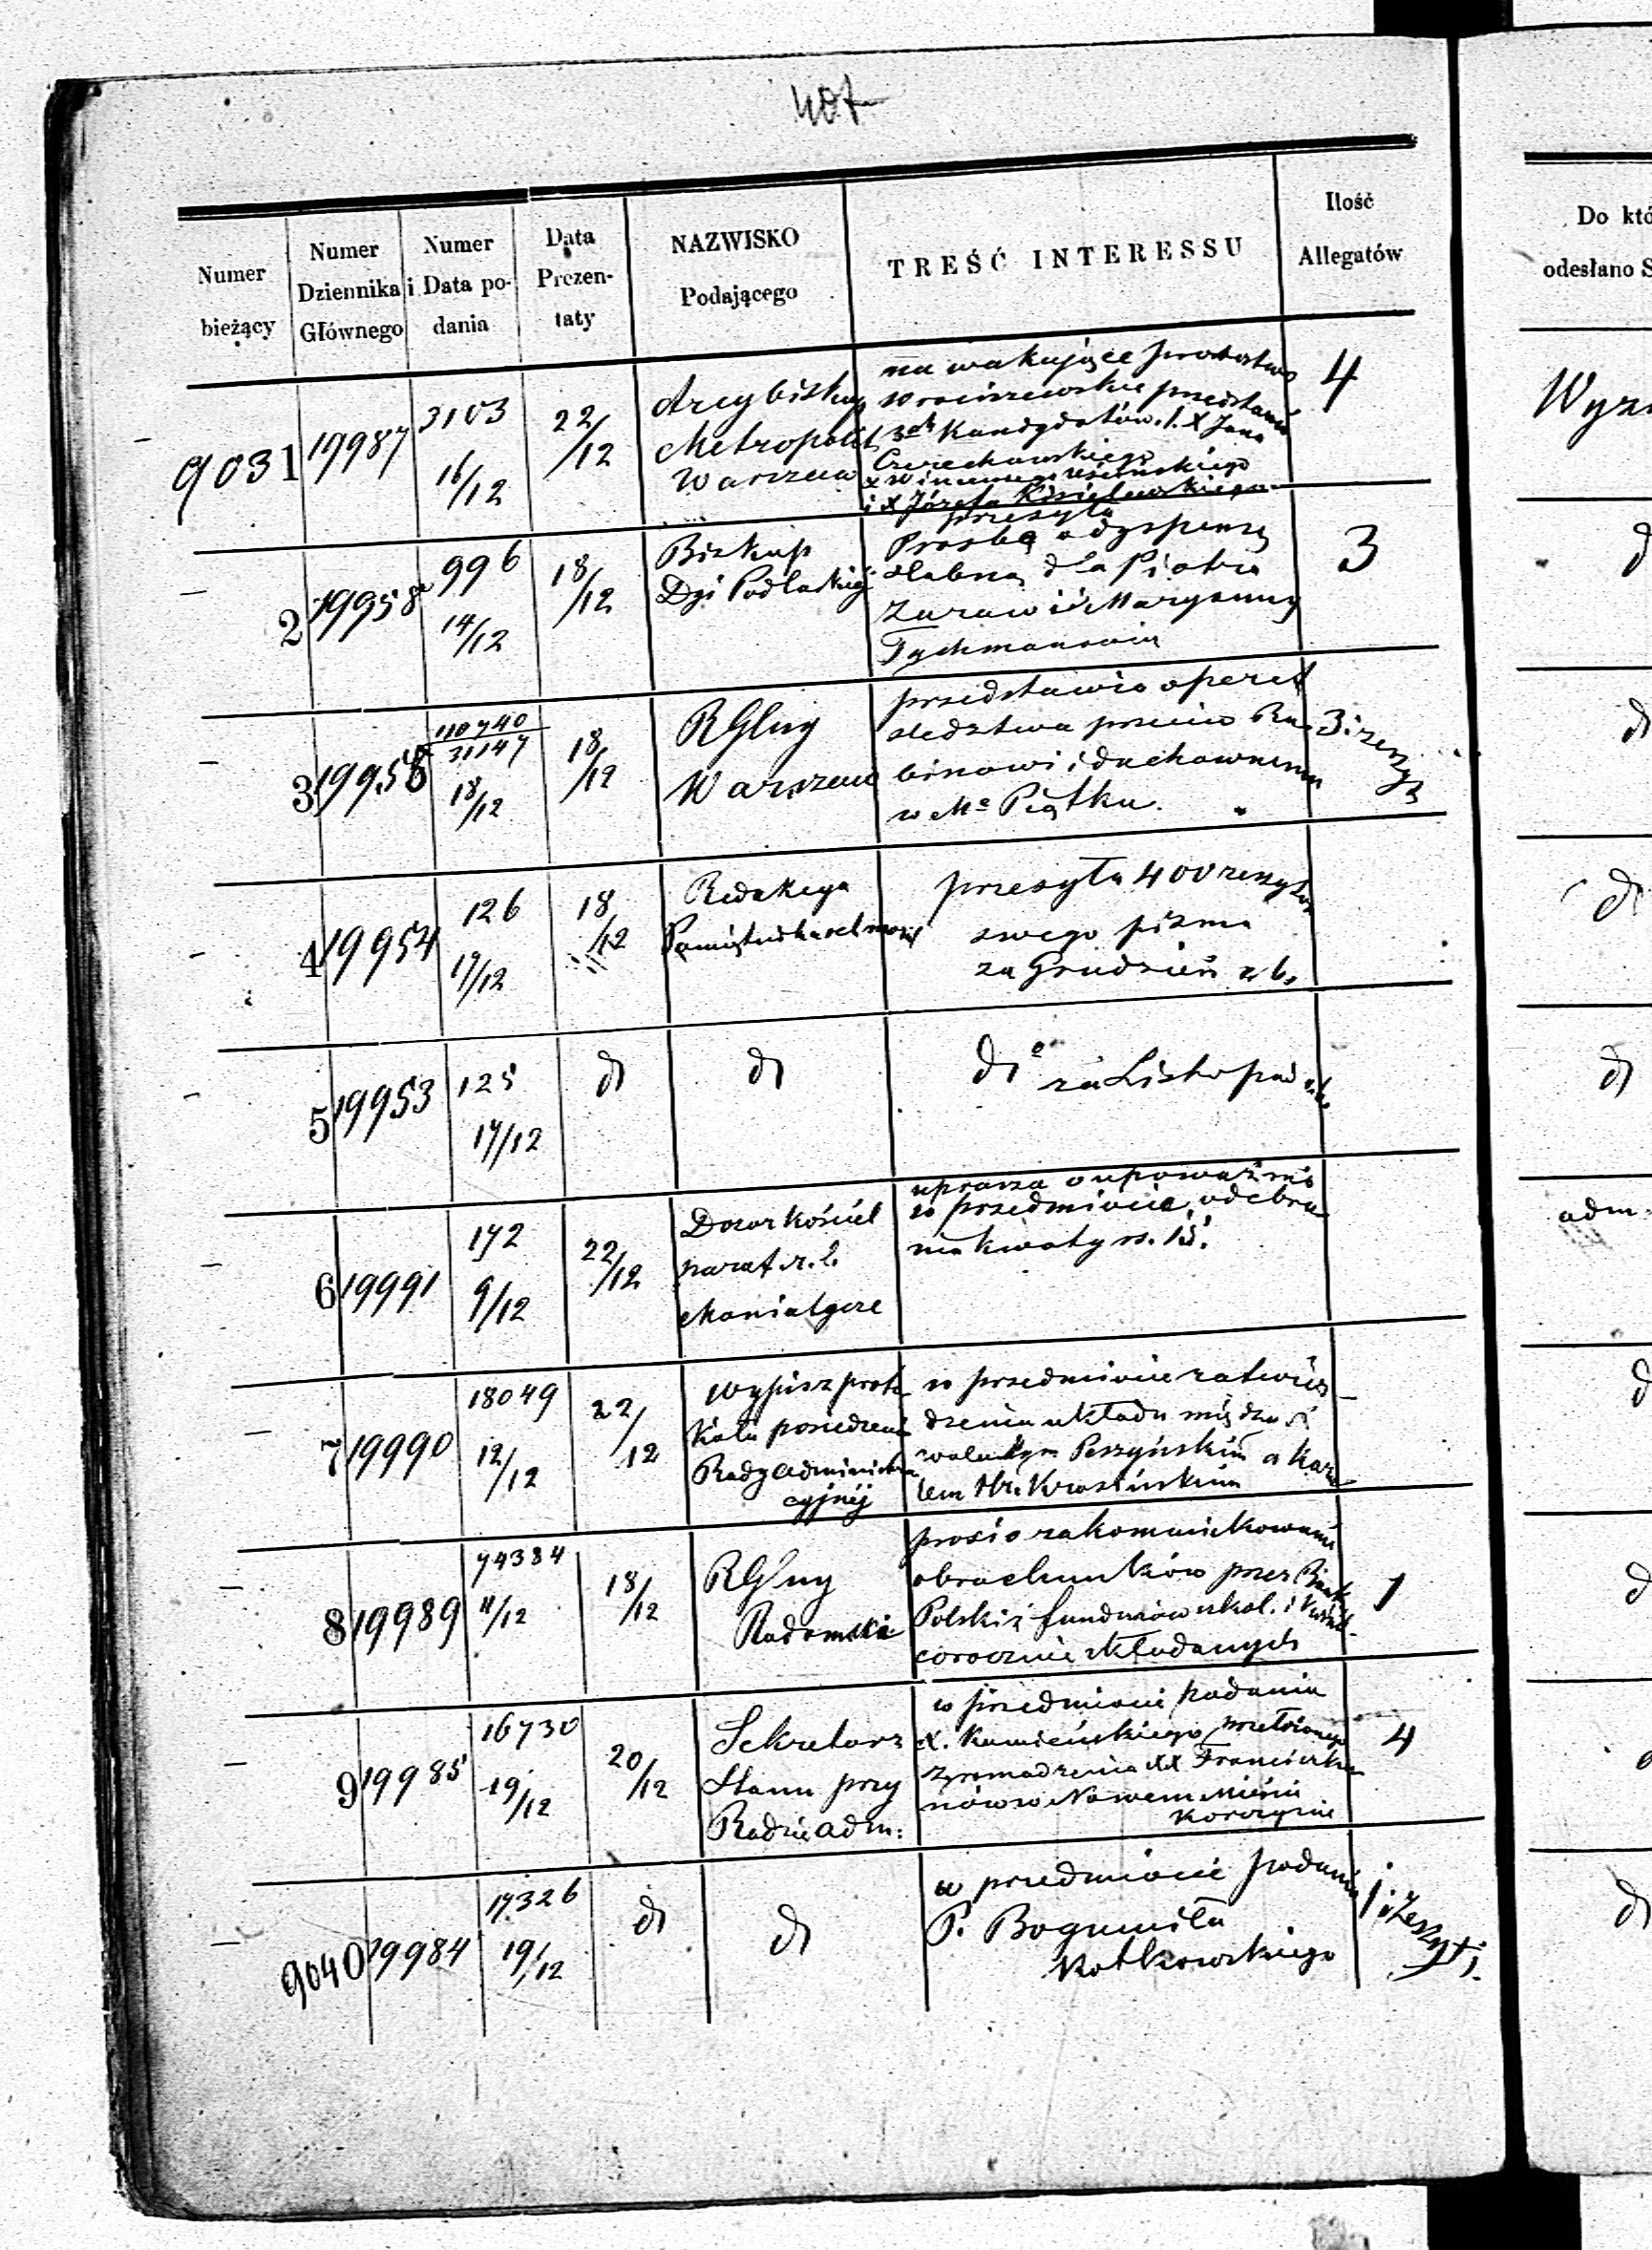 407
Numer
bieżący
Numer
Dziennika
Głównego
Numer
i Data po-
dania
Data
Prezen-
taty
NAZWISKO
Podającego
TREŚĆ INTERESSU
Ilość
Allegatów
Do któ
odesłano S
9031
19987
3103
16/12
22/12
Arcybiskup
Metropolit
Warszaw
na wakujące probostwo
przedstawia
3ch Kandydatów. 1. X Jana
Czerechowskiego
i X Józefa Kisielewskiego
4
Wyzn
2
19958
996
14/12
18/12
Biskup
Dyi Podlaskiej
przesyła
Prosbę o dyspensę
slabną dla Piotra
Zuraw i Maryanny
3
d
3
19958
110740
31147
18/12
18/12
RGlny
Warszaw
przedstawia operat
sledztwa przeciw Ra
binowi i duchownemu
w Me Piątku.
3 i zeszyt
d
4
19954
126
17/12
18/12
Redakcya
przesyła 400 zeszytów
swego pisma
za Grudzień rb.
d
5
19953
125
17/12
d
d
do za Listopad
d
6
19991
172
9/12
22/12
Dozor Kościel
paraf. r. l.
uprasza o upoważnie
w przedmiocie odebra
nia kwoty rs. 15.
adm
7
19990
18049
12/12
22/12
Wypis z proto
kółu posiedzenia
Rady Administra
cyjnej
w przedmiocie zatwier
dzenia układu między
Peszyńskim a Karo
lem Hr. Krasińskim
d
8
19989
74384
11/12
18/12
RGlny
Radomski
prosi o zakomunikowanie
obrachunków przez Bank
Polski z funduszów szkol. i kościel.
corocznie składanych
1
d
9
19985
16730
19/12
20/12
Sekretarz
Stanu przy
Radzie adm:
w przedmiocie podania
X. Kamieńskiego przełożonego
zgromadzenia XX Franciszka
nów w Nowem Mieście
Korczynie
4
9040
19984
17326
19/12
d
d
w przedmiocie podania
P. Bogumiła
Kotkowskiego
1 i zeszyt 1.
d